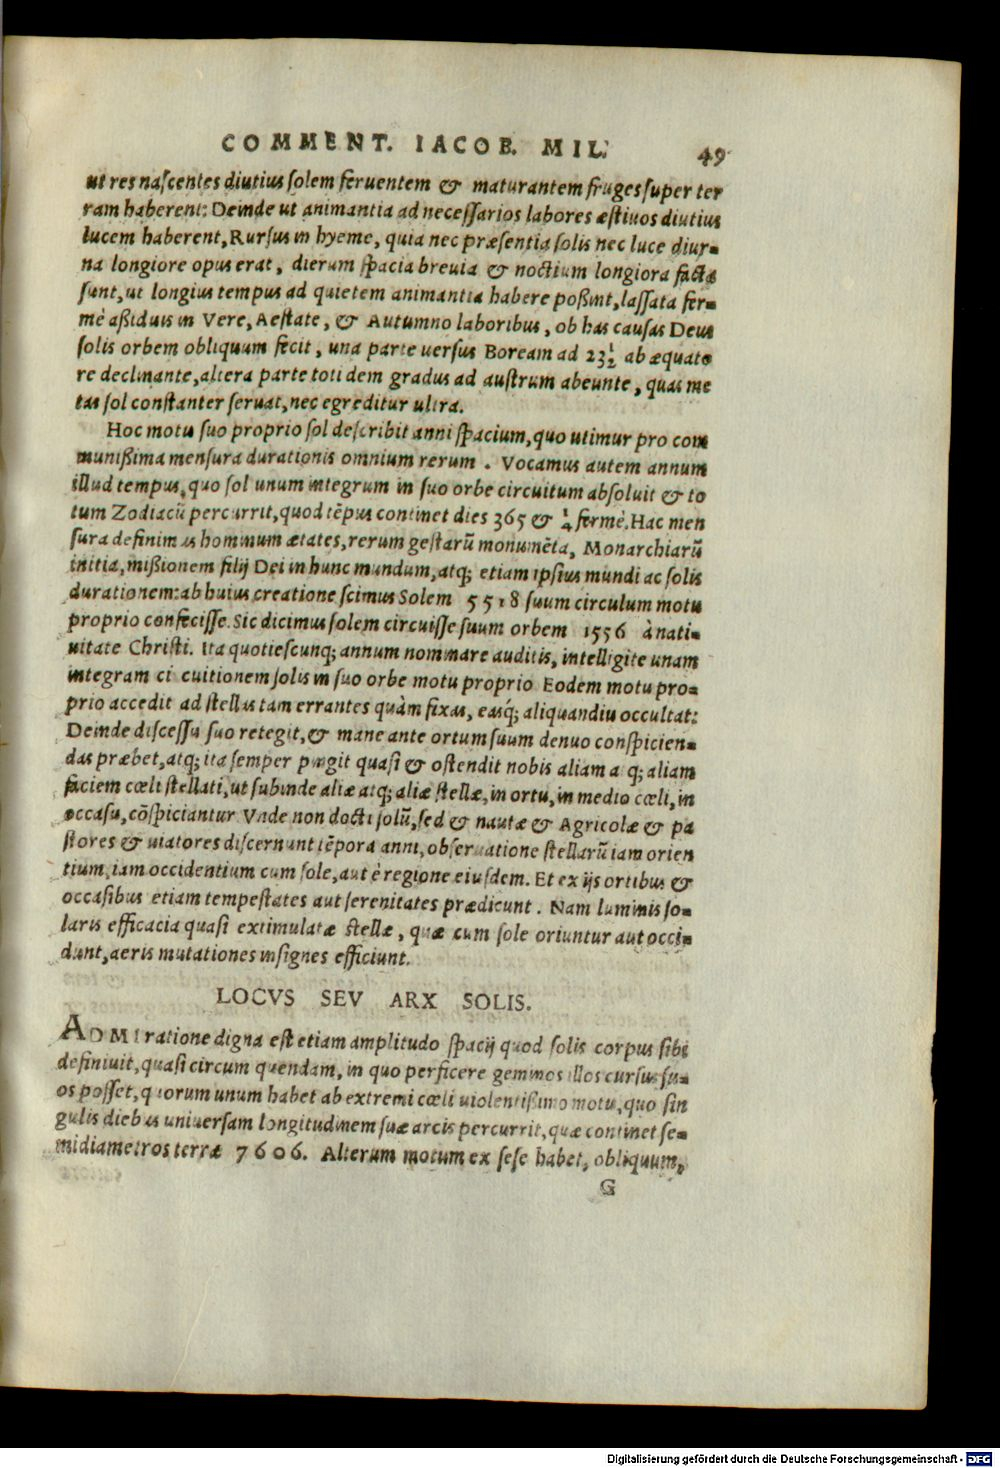 COMMENT. IACOB. MIL. 49
ut res nascentes diutius solem feruentem & maturantem fruges super ter
ram haberent: Deinde ut animantia ad necessarios labores æstiuos diutius
lucem haberent, Rursus in hyeme, quia nec præsentia solis nec luce diur=
na longiore opus erat, dierum spacia breuia & noctium longiora facta
sunt, ut longius tempus ad quietem animantia habere poßint, lassata fer=
mè aßiduis in Vere, Aestate, & Autumno laboribus, ob has causas Deus
solis orbem obliquum fecit, una parte uersus Boream ad 23½ ab æquato
re declinante, altera parte toti dem gradus ad austrum abeunte, quas me
tas sol constanter seruat, nec egreditur ultra.
Hoc motu suo proprio sol describit anni spacium, quo utimur pro com
munißima mensura durationis omnium rerum. Vocamus autem annum
illud tempus, quo sol unum integrum in suo orbe circuitum absoluit & to
tum Zodiacū percurrit, quod tēpus continet dies 365 & ¼ fermè. Hac men
sura definimus hominum ætates, rerum gestarū monumēta, Monarchiarū
initia, mißionem filij Dei in hunc mundum, atq; etiam ipsius mundi ac solis
durationem: ab huius creatione scimus Solem 5518 suum circulum motu
proprio confecisse. Sic dicimus solem circuisse suum orbem 1556 à nati=
uitate Christi. Ita quotiescunq; annum nominare auditis, intelligite unam
integram ci cuitionem solis in suo orbe motu proprio Eodem motu pro=
prio accedit ad stellas tam errantes quàm fixas, easq́; aliquandiu occultat:
Deinde discessu suo retegit, & mane ante ortum suum denuo conspicien=
das præbet, atq; ita semper pingit quasi & ostendit nobis aliam a q; aliam
faciem cœli stellati, ut subinde aliæ atq; aliæ stellæ, in ortu, in medio cœli, in
occasu, cōspiciantur Vnde non docti solū, sed & nautæ & Agricolæ & pa
stores & uiatores discernunt tēpora anni, obseruatione stellarū iam orien
tium, iam occidentium cum sole, aut è regione eiusdem. Et ex ijs ortibus &
occasibus etiam tempestates aut serenitates prædicunt. Nam luminis so=
laris efficacia quasi extimulatæ stellæ, quæ cum sole oriuntur aut occi=
dunt, aeris mutationes insignes efficiunt.
LOCVS SEV ARX SOLIS.
ADMIratione digna est etiam amplitudo spacij quod solis corpus sibi
definiuit, quasi circum quendam, in quo perficere geminos illos cursus su=
os posset, quorum unum habet ab extremi cœli uiolentißimo motu, quo sin
gulis diebus uniuersam longitudinem suæ arcis percurrit, quæ continet se=
midiametros terræ 7606. Alterum motum ex sese habet, obliquum,
G
Digitalisierung gefördert durch die Deutsche Forschungsgemeinschaft - DFG